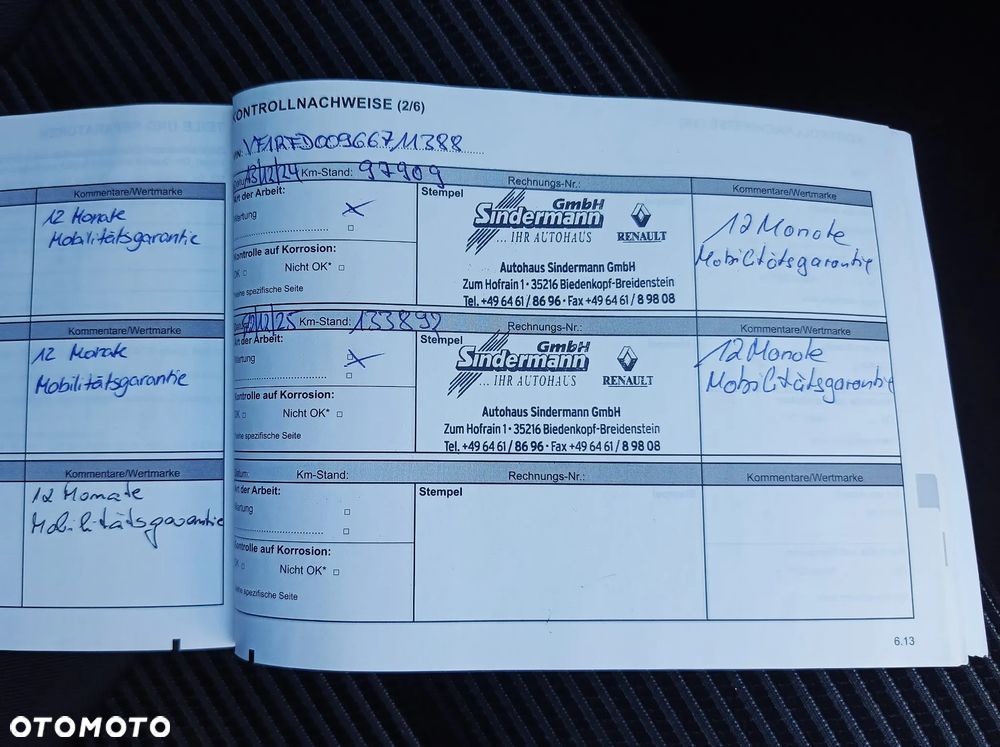 Kommentare/Wertmarke
12 Monate
Mobilitätsgarantie
Kommentare/Wertmarke
12 Monate
Mobilitätsgarantie
Kommentare/Wertmarke
12 Monate
Mobilitätsgarantie
KONTROLLNACHWEISE (2/6)
VIN: VF1RFD00966711388
13/12/24 Km-Stand: 97909 Rechnungs-Nr.: Kommentare/Wertmarke
Art der Arbeit: Stempel
Wartung
Kontrolle auf Korrosion:
OK Nicht OK*
*siehe spezifische Seite
GmbH
Sindermann
... IHR AUTOHAUS
RENAULT
Autohaus Sindermann GmbH
Zum Hofrain 1 · 35216 Biedenkopf-Breidenstein
Tel. +49 64 61 / 86 96 · Fax +49 64 61 / 8 98 08
12 Monate
Mobilitätsgarantie
/12/25 Km-Stand: 133892 Rechnungs-Nr.: Kommentare/Wertmarke
Art der Arbeit: Stempel
Wartung
Kontrolle auf Korrosion:
OK Nicht OK*
*siehe spezifische Seite
GmbH
Sindermann
... IHR AUTOHAUS
RENAULT
Autohaus Sindermann GmbH
Zum Hofrain 1 · 35216 Biedenkopf-Breidenstein
Tel. +49 64 61 / 86 96 · Fax +49 64 61 / 8 98 08
12 Monate
Mobilitätsgarantie
Datum: Km-Stand: Rechnungs-Nr.: Kommentare/Wertmarke
Art der Arbeit: Stempel
Wartung
Kontrolle auf Korrosion:
OK Nicht OK*
*siehe spezifische Seite
6.13
OTOMOTO